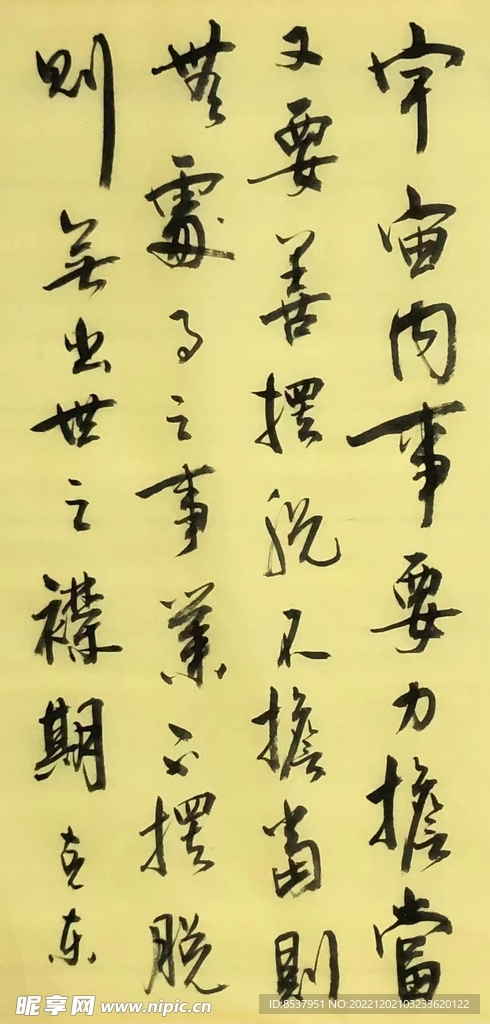 宇宙内事要力擔當
又要善擺脱不擔當則
無處之事業不擺脱
則無出世之襟期 克东
昵享网 www.nipic.cn
ID:8537951 NO:20221202103233620122